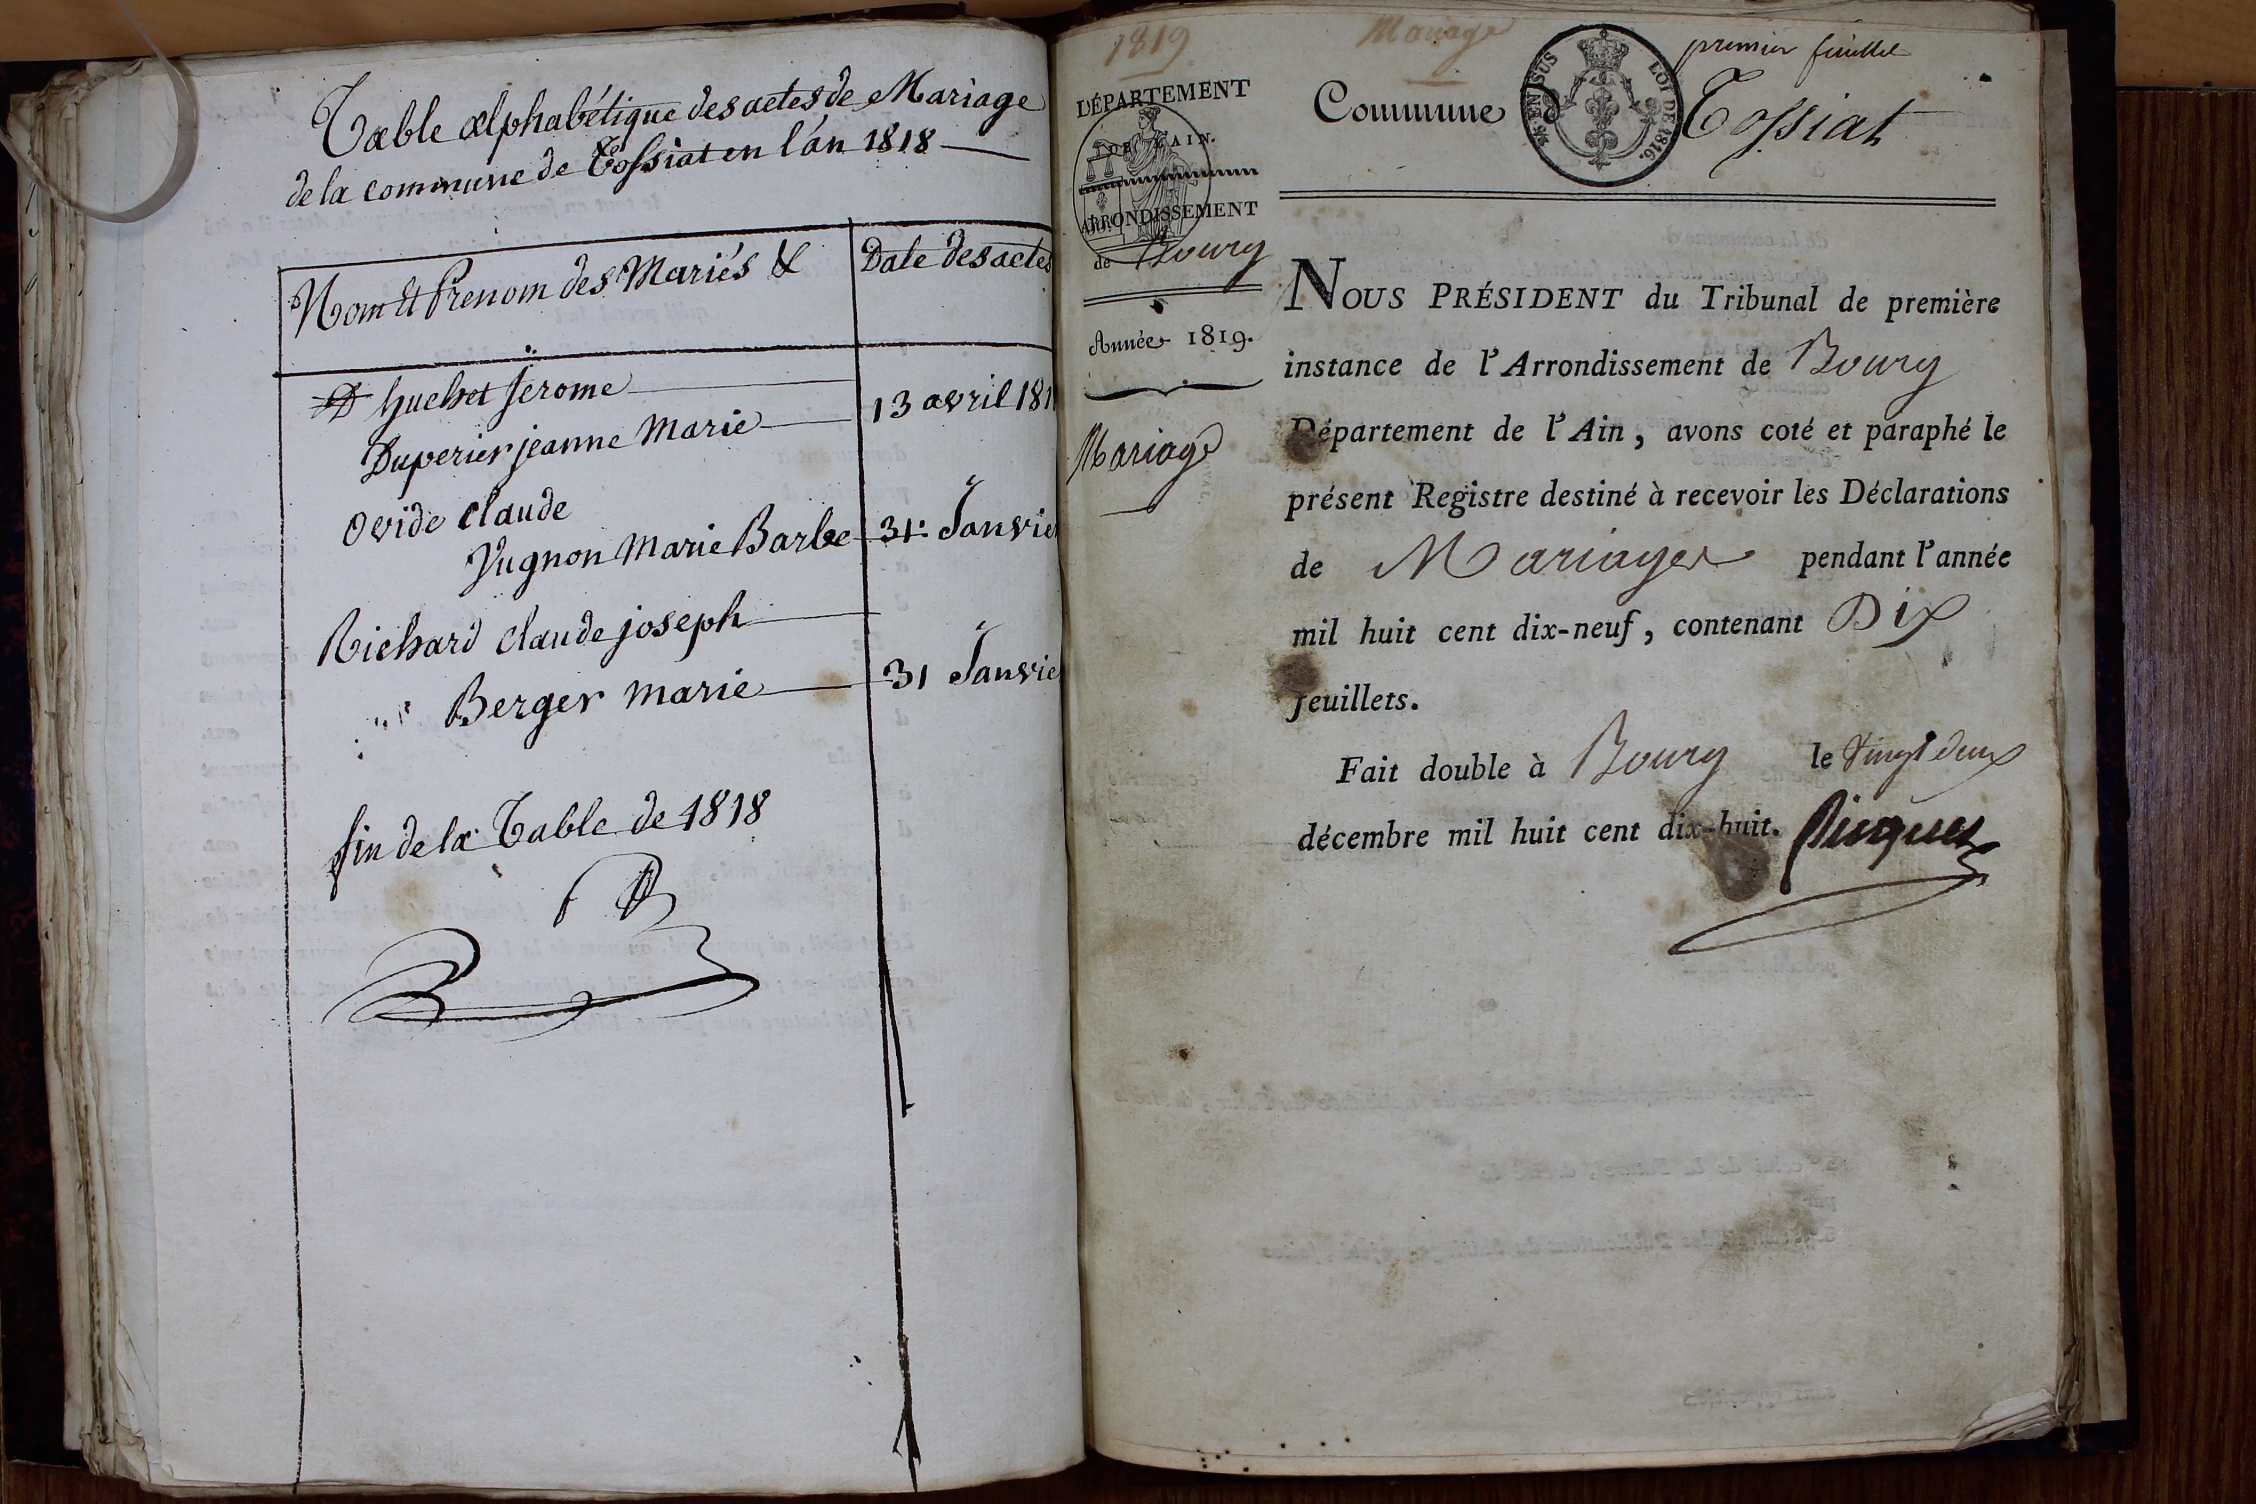 Table alphabétique des actes de Mariage
de la commune de Tossiat en l'an 1818
Nom et Prenom des Mariés &
Date des actes
huchet Jerome
Duperier jeanne Marie
13 avril 181
Ovide Claude
Vugnon Marie Barbe
31 Janvie
Richard Claude joseph
Berger Marie
31 Janvie
fin de la Table de 1818
1819
Mariage
premier feuillet
DÉPARTEMENT
DE L'AIN.
ARRONDISSEMENT
de Bourg
Année 1819.
Mariage
Commune d
EN SUS
LOI DE 1816.
Tossiat
NOUS PRÉSIDENT du Tribunal de première
instance de l'Arrondissement de Bourg
Département de l'Ain, avons coté et paraphé le
présent Registre destiné à recevoir les Déclarations
de Mariages pendant l'année
mil huit cent dix-neuf, contenant Dix
feuillets.
Fait double à Bourg le Vingt deux
décembre mil huit cent dix-huit.